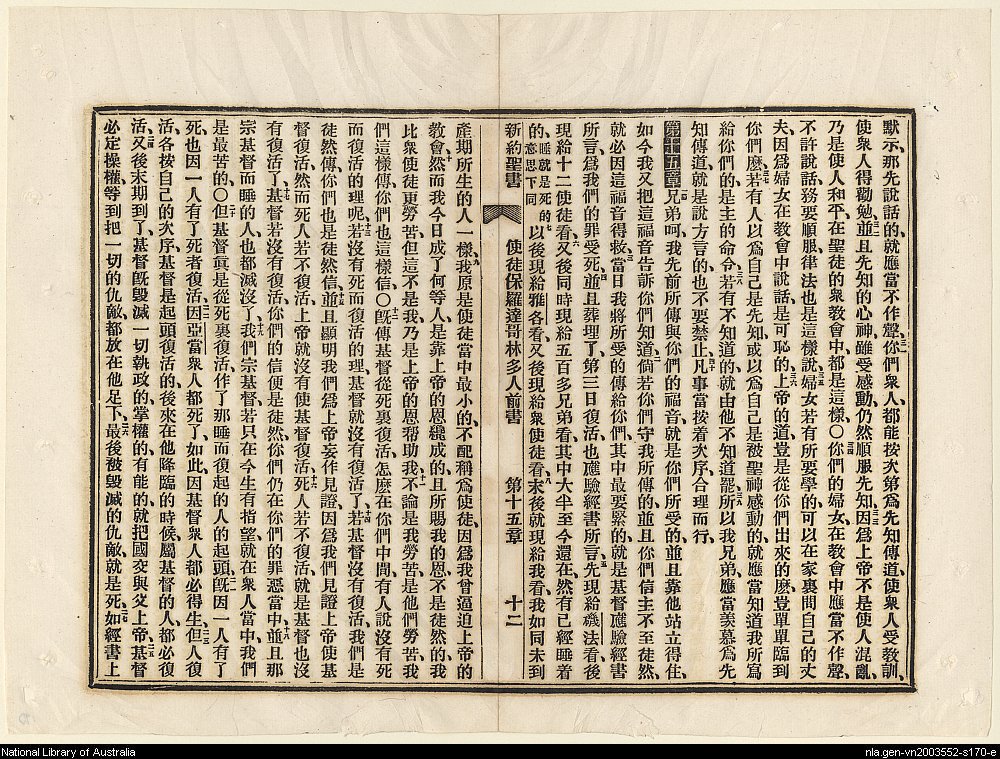 默示、那先說話的、就應當不作聲、你們衆人、都能按次第爲先知傳道、使衆人受教訓、
使衆人得勸勉、並且先知的心神、雖受感動、仍然順服先知、因爲上帝不是使人混亂、
乃是使人和平、在聖徒的衆教會中、都是這樣、〇你們的婦女、在教會中應當不作聲、
不許說話、務要順服、律法也是這樣說、婦女若有所要學的、可以在家裏問自己的丈
夫、因爲婦女在教會中說話、是可恥的、上帝的道、豈是從你們出來的麽、豈單單臨到
你們麽、若有人以爲自己是先知、或以爲自己是被聖神感動的、就應當知道我所寫
給你們的、是主的命令、若有不知道的、就由他不知道罷、所以我兄弟、應當羨慕爲先
知傳道、就是說方言的、也不要禁止、凡事當按着次序合理而行、
第十五章 兄弟呵、我先前所傳與你們的福音、就是你們所受的、並且靠他站立得住、
如今我又把這福音告訴你們知道、倘若你們守我所傳的、並且你們信主不至徒然、
就必因這福音得救、當日我將所受的傳給你們、其中最要緊的、就是基督應驗經書
所言、爲我們的罪受死、並且葬埋了、第三日復活、也應驗經書所言、先現給磯法看、後
現給十二使徒看、又後同時現給五百多兄弟看、其中大半至今還在、然有已經睡着
的、睡就是死的意思下同以後現給雅各看、又後現給衆使徒看、末後就現給我看、我如同未到
新約聖書 使徒保羅達哥林多人前書 第十五章 十二
產期所生的人一樣、我原是使徒當中最小的、不配稱爲使徒、因爲我曾逼迫上帝的
教會、然而我今日成了何等人、是靠上帝的恩纔成的、且所賜我的恩不是徒然的、我
比衆使徒更勞苦、但這不是我、乃是上帝的恩帮助我、不論是我勞苦、是他們勞苦、我
們這樣傳、你們也這樣信、〇旣傳基督從死裏復活、怎麽在你們中間、有人說沒有死
而復活的理呢、若沒有死而復活的理、基督就沒有復活了、若基督沒有復活、我們是
徒然傳、你們也是徒然信、並且顯明我們爲上帝妄作見證、因爲我們見證上帝使基
督復活、然而死人若不復活、上帝就沒有使基督復活、死人若不復活、就是基督也沒
有復活了、基督若沒有復活、你們的信便是徒然、你們仍在你們的罪惡當中、並且那
宗基督而睡的人、也都滅沒了、我們宗基督、若只在今生有指望、就在衆人當中、我們
是最苦的、〇但基督眞是從死裏復活、作了那睡而復起的人的起頭、旣因一人有了
死、也因一人有了死者復活、因亞當衆人都死了、如此因基督衆人都必得生、但人復
活、各按自己的次序、基督是起頭復活的、後來在他降臨的時候、屬基督的人都必復
活、又後末期到了、基督旣毀滅一切執政的、掌權的、有能的、就把國交與父上帝、基督
必定操權、等到把一切的仇敵、都放在他足下、最後被毀滅的仇敵、就是死、如經書上
National Library of Australia
nla.gen-vn2003552-s170-e